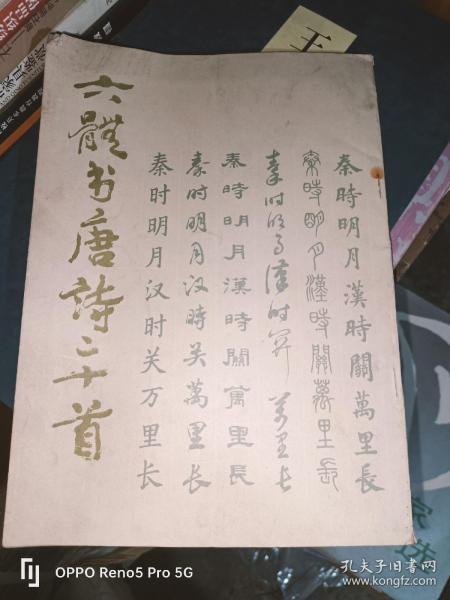 六體书唐詩二十首
秦時明月漢時關萬里長
秦時明月漢時關萬里長
秦时明月漢时关萬里长
秦時明月漢時關萬里長
秦时明月汉時关萬里長
秦时明月汉时关万里长
王
OPPO Reno5 Pro 5G
孔夫子旧书网
www.kongfz.com